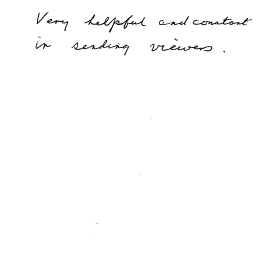 Very helpful and constant
in sending viewers.